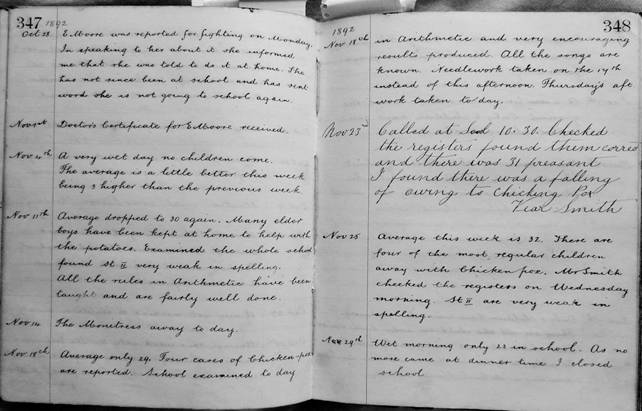 347 1892
Oct 28 E Moore was reported for fighting on Monday.
In speaking to her about it she informed
me that she was told to do it at home. She
has not since been at school and has sent
word she is not going to school again.
Nov 1st Doctor's Certificate for E Moore received.
Nov 4th A very wet day no children come.
The average is a little better this week
being 3 higher than the previous week
Nov 11th Average dropped to 30 again. Many elder
boys have been kept at home to help with
the potatoes. Examined the whole school
found St II very weak in spelling.
All the rules in Arithmetic have been
taught and are fairly well done.
Nov 14 The Monitress away to day.
Nov 18th Average only 29. Four cases of Chicken-pox
are reported. School examined to day
1892 348
Nov 18th in Arithmetic and very encouraging
results produced. All the songs are
known. Needlework taken on the 17th
instead of this afternoon Thursday's aft
work taken to day.
Nov 23rd Called at 10.30. Checked
the registers found them correc
and there was 31 preasant
I found there was a falling
of owing to Chicking Pox
Smith
Nov 25 Average this week is 32. There are
four of the most regular children
away with Chicken pox. Mr Smith
checked the registers on Wednesday
morning. St II are very weak in
spelling.
Nov 29th Wet morning only 22 in school. As no
more came at dinner time I closed
school